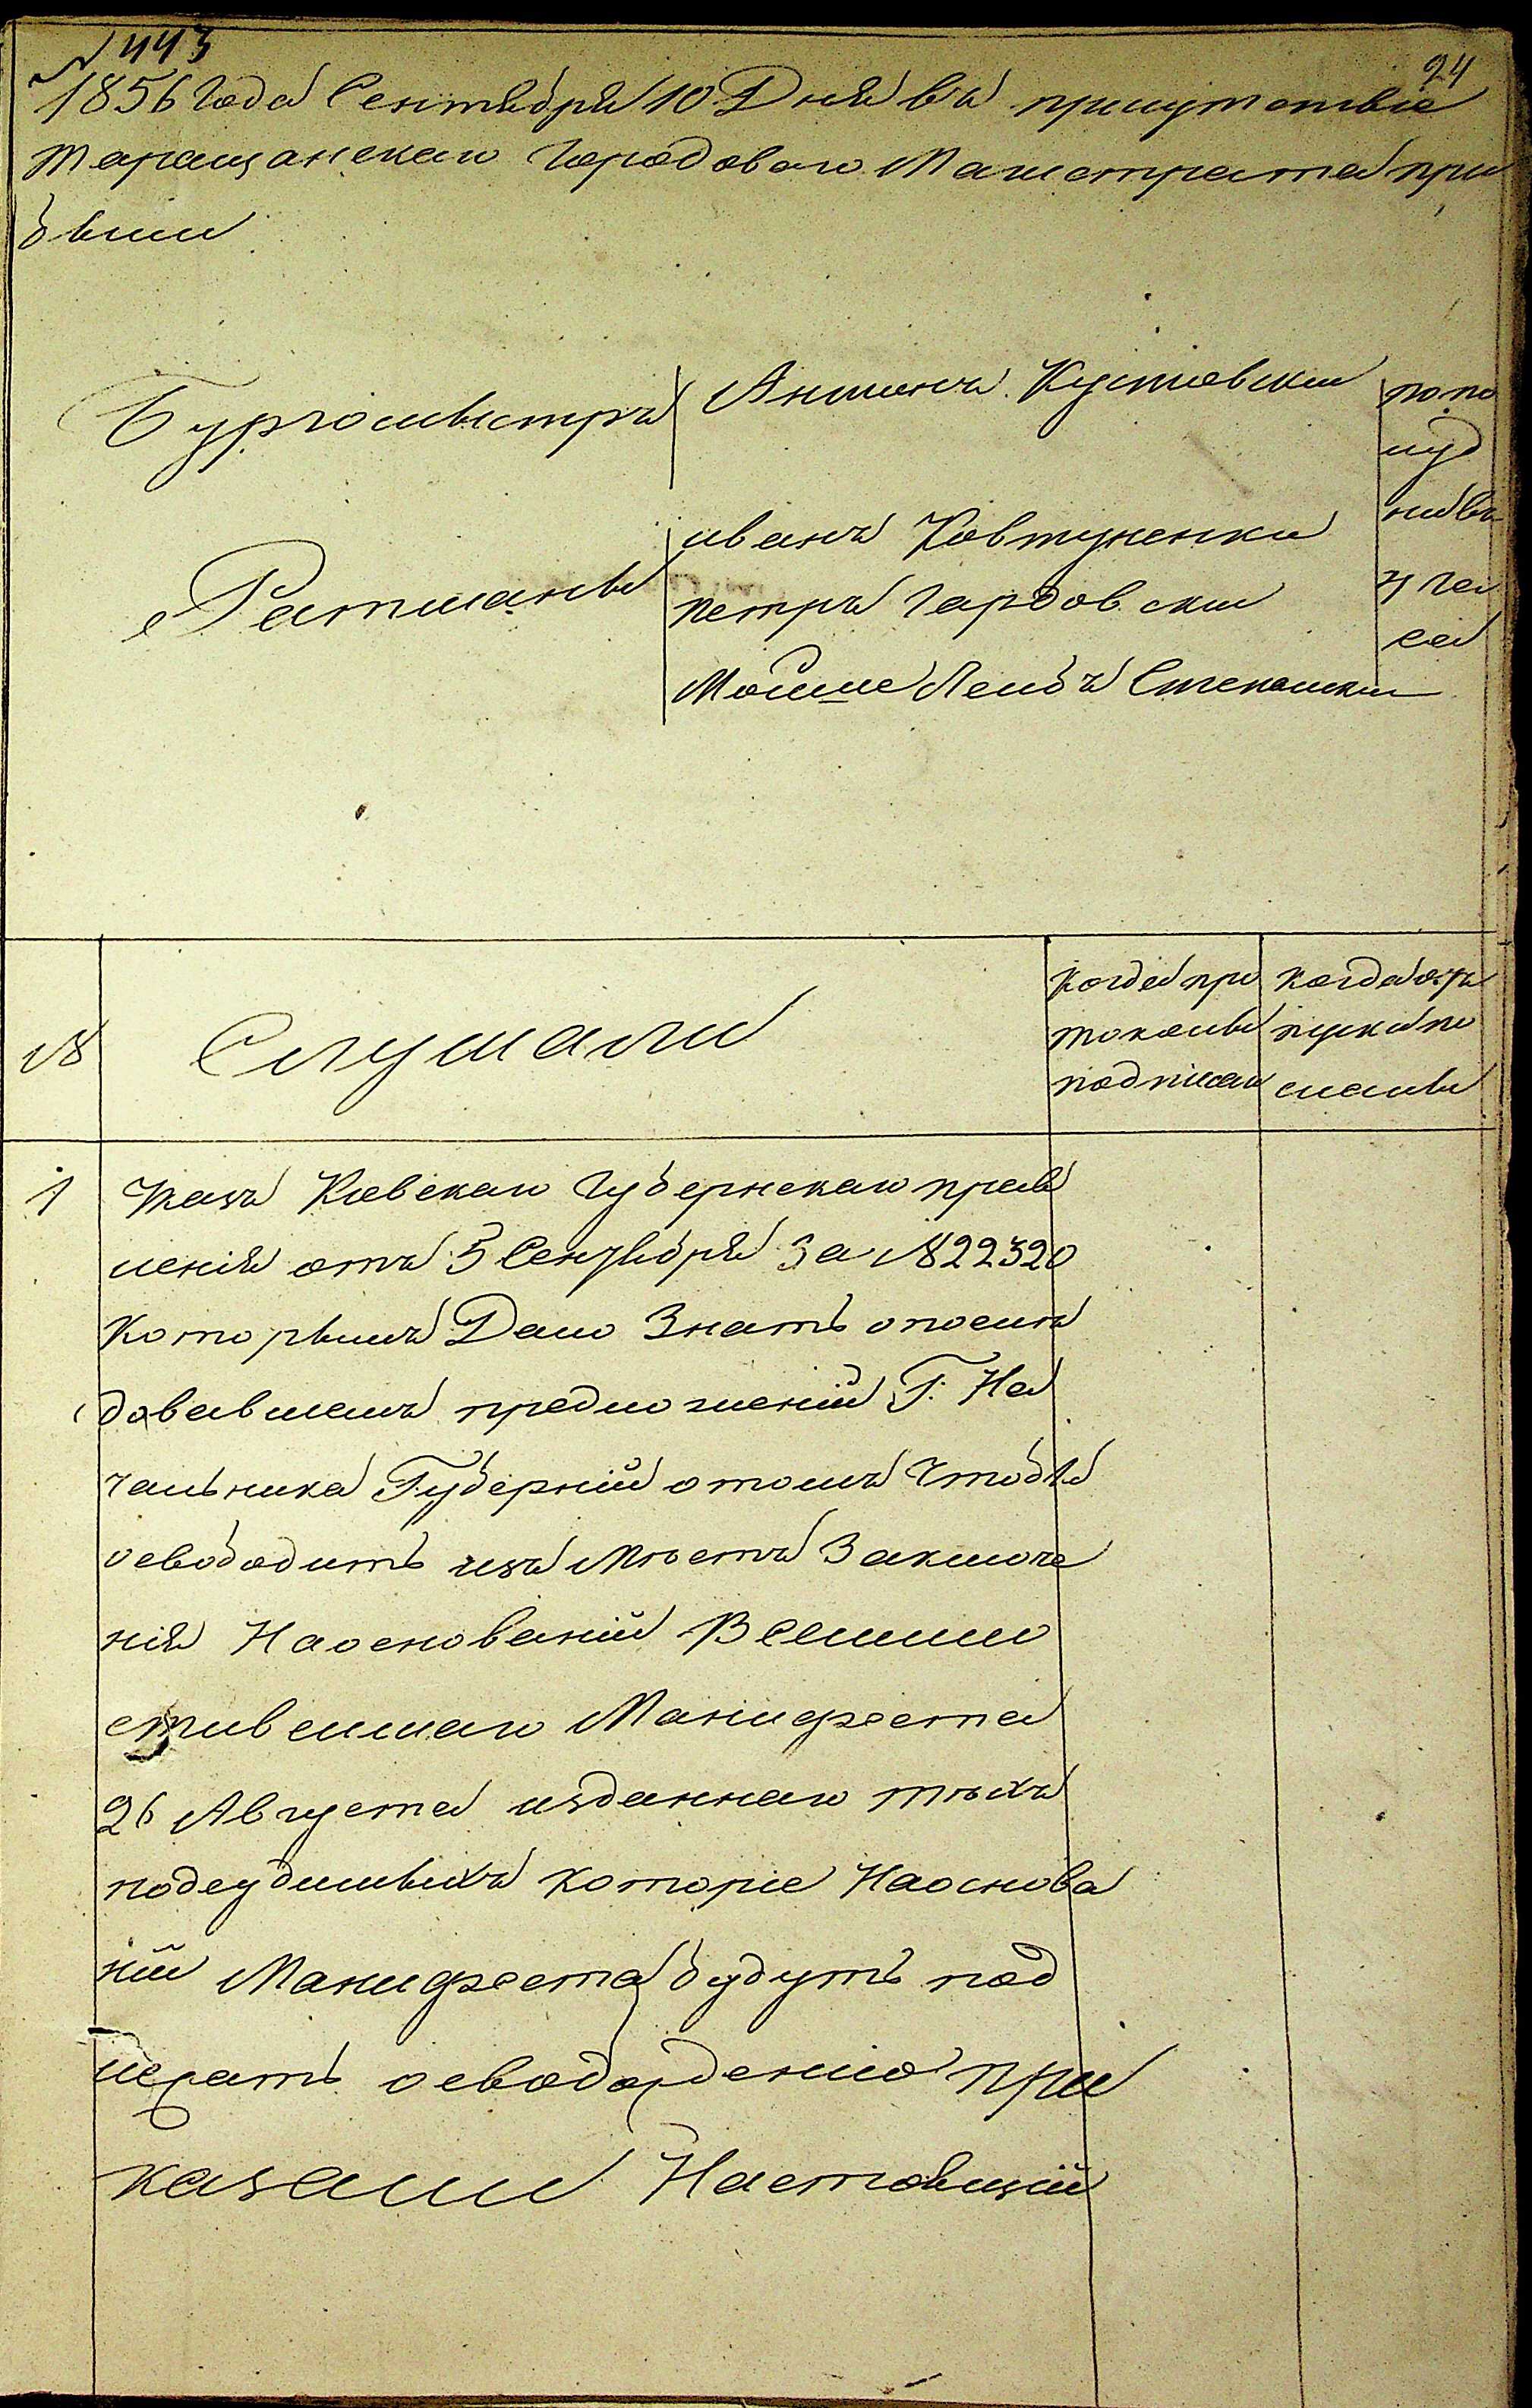 № 443
24
1856 года Сентября 10 Дня въ присутствіе
Таращанскаго Городоваго Магистрата при
были
Бургомыстръ
Антонъ Кустовски
Ратманы
иванъ Ковтуненки
петръ Гардовски
Мойше Лейбъ
по по
луд
ни въ
ча
са
№
Слушали
Когда про
токолы
подписан
Когда отъ
пуски по
сланы
1
Указъ Киевскаго Губернскаго прав
ленія отъ 5 Сентября За №22320
Которымъ Дано Знать о послѣ
довавшемъ предложеній Г. На
чальника Губерній отомъ Чтобы
освободить изъ Мѣстъ Заключе
нія Наоснованій Всемило
стивейшаго Манифеста
26 Августа изданнаго тѣхъ
подсудимыхъ которіе Наоснова
ній Манифеста будутъ под
лежать освобождению при
казали Настоящій